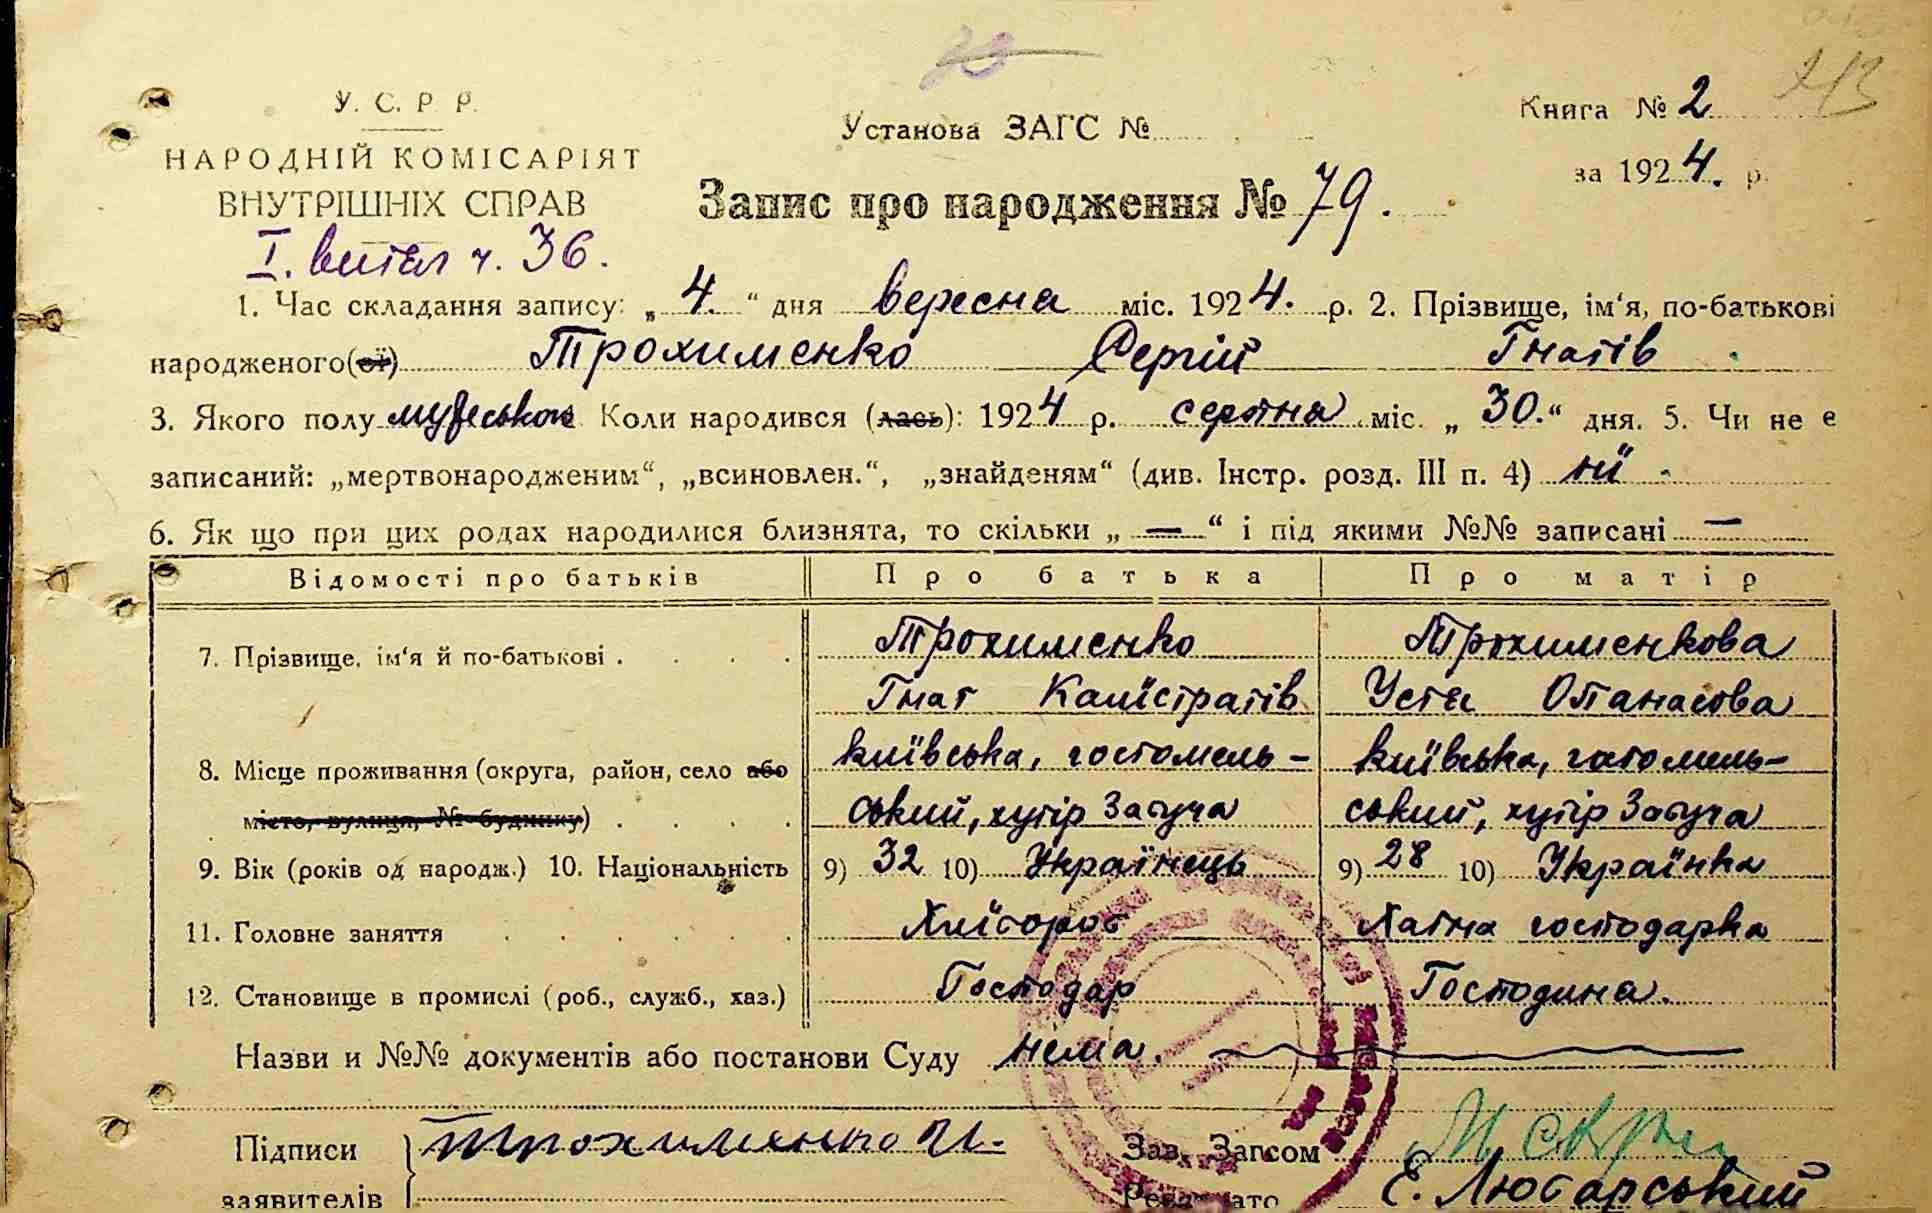 У. С. Р. Р.
НАРОДНІЙ КОМІСАРІЯТ
ВНУТРІШНІХ СПРАВ
I. витяг ч. 36.
Установа ЗАГС №
Книга № 2
за 1924. р.
Запис про народження № 79.
1. Час складання запису: „4.“ дня вересня міс. 1924. р. 2. Прізвище, ім‘я, по-батькові
народженого(ої) Трохименко Сергій Гнатів
3. Якого полу мужеського Коли народився (лась): 1924 р. серпня міс. „30.“ дня. 5. Чи не є
записаний: „мертвонародженим“, „всиновлен.“, „знайденям“ (див. Інстр. розд. III п. 4) ні
6. Як що при цих родах народилися близнята, то скільки „—“ і під якими №№ записані —
Відомості про батьків Про батька Про матір
7. Прізвище, ім‘я й по-батькові . . . . Трохименко Трохименкова
Гнат Калістратів Устя Опанасова
8. Місце проживання (округа, район, село або київська, гостомель- київська, гостомель-
місто, вулиця, № будинку) . . . . ський, хутір Забуча ський, хутір Забуча
9. Вік (років од народж.) 10. Національність 9) 32 10) Українець 9) 28 10) Українка
11. Головне заняття . . . . . Хлібороб Хатня господарка
12. Становище в промислі (роб., служб., хаз.) Господар Господиня.
Назви и №№ документів або постанови Суду нема.
Підписи Трохименко Зав. Загсом
заявителів Е. Любарський